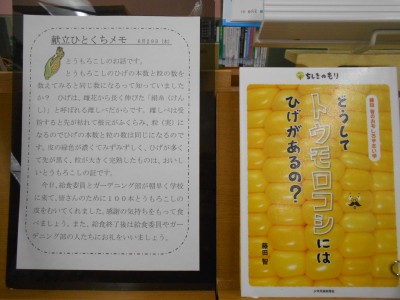 献立ひとくちメモ
6月25日(水)
とうもろこしのお話です。
とうもろこしのひげの本数と粒の数を
数えてみると同じ数になるって知っていました
か？ ひげは、雌花から長く伸びた「絹糸（けん
し）」と呼ばれる雌しべだからです。雌しべは受
粉すると先が枯れて根元がふくらみ、粒（実）に
なるのでひげの本数と粒の数は同じになるので
す。皮の緑色が濃くてみずみずしく、ひげが多く
て先が茶く、粒が大きく完熟したものは、おいし
いとうもろこしの証です。
今日、給食委員とガーデニング部が朝早く学校
に来て、皆さんのために１００本とうもろこしの
皮をむいてくれました。感謝の気持ちをもって食
べましょう。また、給食終了後は給食委員やガー
デニング部の人たちにお礼をいいましょう。
ちしきのもり
どうして
トウモロコシには
ひげがあるの？
藤田 智